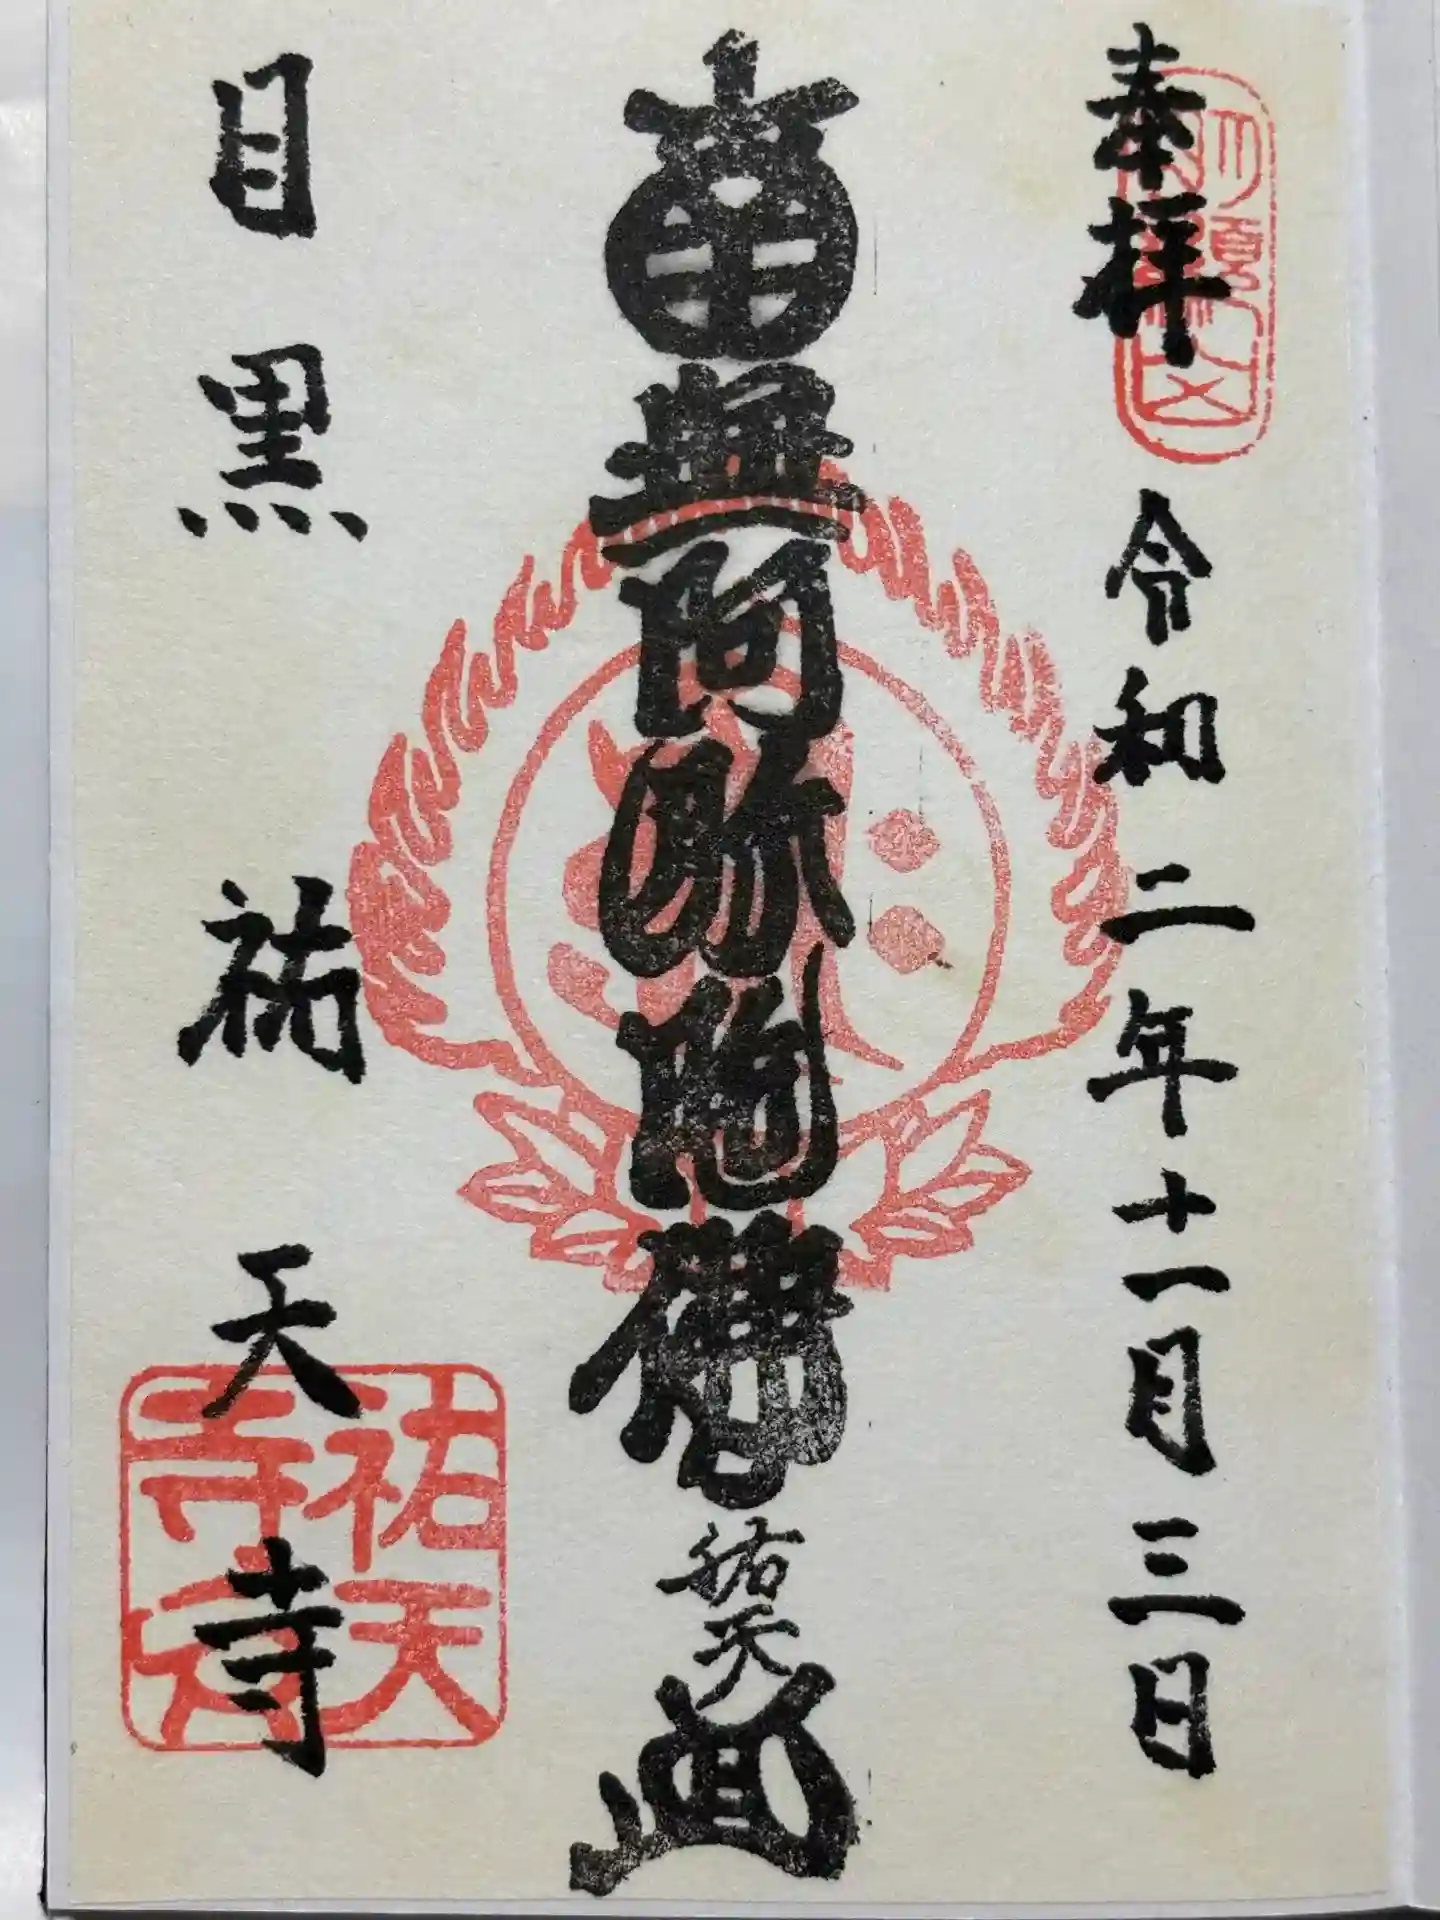 奉拝
令和二年十一月三日
南無阿弥陀佛
祐天
目黒 祐天寺
祐天寺